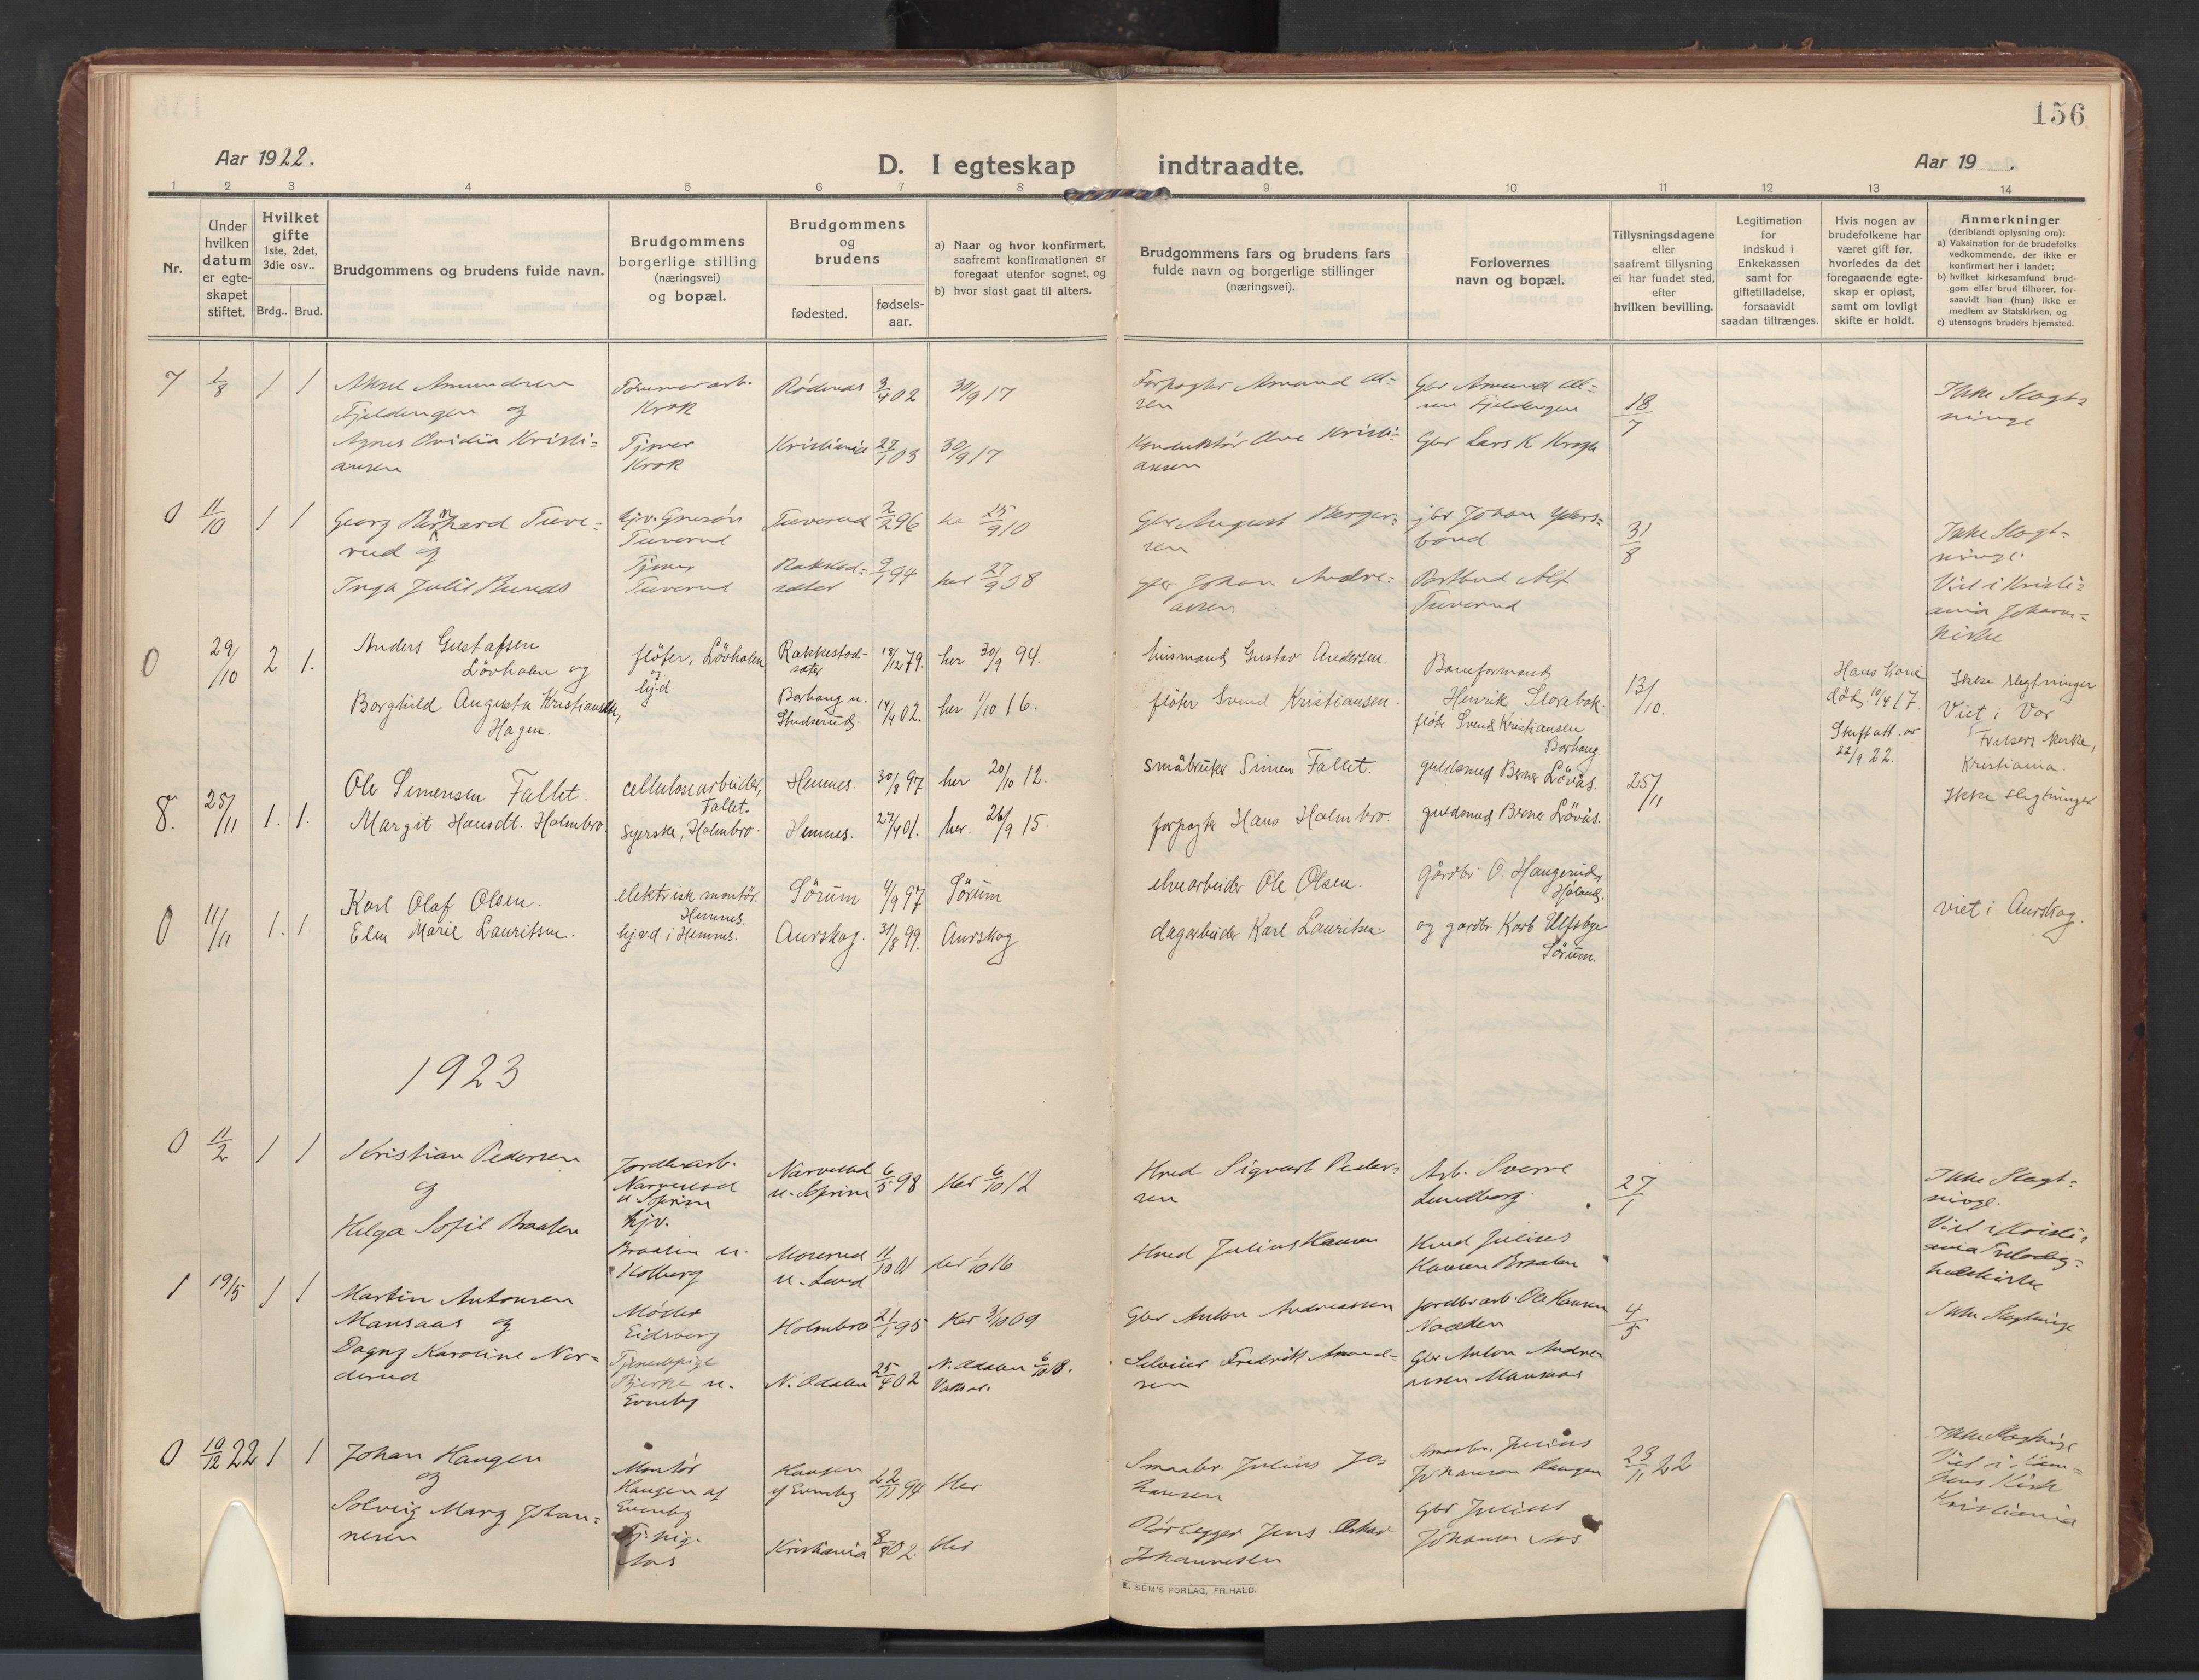 156
Aar 1922.
D. I egteskap indtraadte.
Aar 19 .
1 2 3 4 5 6 7 8 9 10 11 12 13 14
Nr.
Under
hvilken
datum
er egte-
skapet
stiftet.
Hvilket
gifte
1ste, 2det,
3die osv..
Brdg.. Brud.
Brudgommens og brudens fulde navn.
Brudgommens
borgerlige stilling
(næringsvei)
og bopæl.
Brudgommens
og
brudens
fødested.
fødsels-
aar.
a) Naar og hvor konfirmert,
saafremt konfirmationen er
foregaat utenfor sognet, og
b) hvor sidst gaat til alters.
Brudgommens fars og brudens fars
fulde navn og borgerlige stillinger
(næringsvei).
Forlovernes
navn og bopæl.
Tillysningsdagene
eller
saafremt tillysning
ei har fundet sted,
efter
hvilken bevilling.
Legitimation
for
indskud i
Enkekassen
samt for
giftetilladelse,
forsaavidt
saadan tiltrænges.
Hvis nogen av
brudefolkene har
været gift før,
hvorledes da det
foregaaende egte-
skap er opløst,
samt om lovligt
skifte er holdt.
Anmerkninger
(deriblandt oplysning om):
a) Vaksination for de brudefolks
vedkommende, der ikke er
konfirmert her i landet;
b) hvilket kirkesamfund brud-
gom eller brud tilhører, for-
saavidt han (hun) ikke er
medlem av Statskirken, og
c) utensogns bruders hjemsted.
7 1/8 1 1
Aksel Amundsen
Fjeldengen og
Agnes Ovidia Kristi=
ansen
Tømmerarb.
Krok
Tjener
Krok
Rødenes 3/4 02 30/9 17
Kristiania 27/1 03 30/9 17
Forpagter Amund Ol=
sen
Konduktør Olve Kristi=
ansen
Gbr Amund Ol=
sen Fjeldengen
Gbr Lars K Krogh
18/7
Ikke Slægt=
ninge
0 11/10 1 1
Georg Bernhard Tuve=
rud og
Inga Julie Bunes
Tuverud
Tjener
Tuverud
Tuverud 2/2 96 her 25/9 10
Rakkestad=
sæter 9/1 94 her 27/9 08
Gbr August Berger=
sen
Gbr Johan Andre=
asen
gbr Johan Yders=
bond
Postbud Alf
Tuverud
31/8
Ikke Slægt=
ninge.
Viet i Kristi=
ania Johannes=
kirke
0 29/10 2 1.
Anders Gustafsen
Lövholen og
Borghild Augusta Kristiansen,
Hagen.
fløter, Lövholen
hj.d.
Rakkestad-
sæter 18/12 79. her 30/9 94.
Borhaug u.
Studserud. 14/4 02. her 1/10 16.
husmand Gustav Andersen.
fløter Svend Kristiansen.
Baneformand
Henrik Slorebæk.
fløter Svend Kristiansen
Borhaug.
13/10.
Hans kone
död 10/4 17.
Skifteatt. av
22/9 22.
Ikke slegtninger
Viet i Vor
Frelsers kirke,
Kristiania.
8. 25/11 1. 1.
Ole Simensen Fallet.
Margit Hansdt. Holmbro
cellulosearbeider,
Fallet.
syerske, Holmbro.
Hemnes. 30/8 97 her 20/10 12.
Hemnes. 27/4 01. her. 26/9 15.
småbruker Simen Fallet.
forpagter Hans Holmbro.
guldsmed Berner Lövås.
guldsmed Berner Lövås.
25/11
Ikke slegtninger
0 11/11 1. 1.
Karl Olaf Olsen.
Elen Marie Lauritsen.
elektrisk montör.
Hemnes.
hj.v.d. i Hemnes.
Sörum 4/9 97 Sörum
Aurskog. 31/8 99. Aurskog
elvearbeider Ole Olsen.
dagarbeider Karl Lauritsen.
Gårdbr O. Hangerud,
Höland.
og gardbr. Karb Ulfsbye
Sörum.
viet i Aurskog.
1923
0 11/2 1 1
Kristian Pedersen
og
Helga Sofie Braaten
Jordbrarb.
Narvestad
hjv.
Braaten u.
Kolberg
Narvestad
u. Soprim 6/5 98 Her 6/10 12
Morerud
u. Lund 11/10 01 Her 1/10 16
Hmd Sigvart Peder=
sen
Hmd Julius Hansen
Arb. Sverre
Lundborg.
Hmd Julius
Hansen Braaten
27/1
Ikke Slægt=
ninge.
Viet i Kristi=
ania Trefoldig=
hedskirke
1 19/5 1 1
Martin Antonsen
Mansaas og
Dagny Karoline Nor=
derud
Møller
Eidsberg
Tjenestepige
Bjerke u.
Evenby
Holmbro 21/1 95 Her 3/10 09
N. Odalen 25/4 02 N. Odalen 6/10 18.
Gbr Anton Andreassen
Fredrik Amund=
sen
Jordbrarb. Ole Hansen
Nadden
Gbr Anton Andre=
assen Mansaas
4/5
Ikke Slægtninge
0 10/12 22 1 1
Johan Haugen
og
Solveig Marg Johan=
nesen
Montør
Haugen af
Evenby
Tj. pige
Aas
Haugen
af Evenby 22/11 94 Her
Kristiania 8/8 02. Her
Smaabr. Julius Jo=
hansen
Rørlegger Jens Oskar
Johannesen
Smaabr. Julius
Johansen Haugen
Gbr Julius
Johansen Aas
23/11 22
Ikke Slægtninge
Viet i
Kristiania
E. SEM'S FORLAG, FR.HALD.